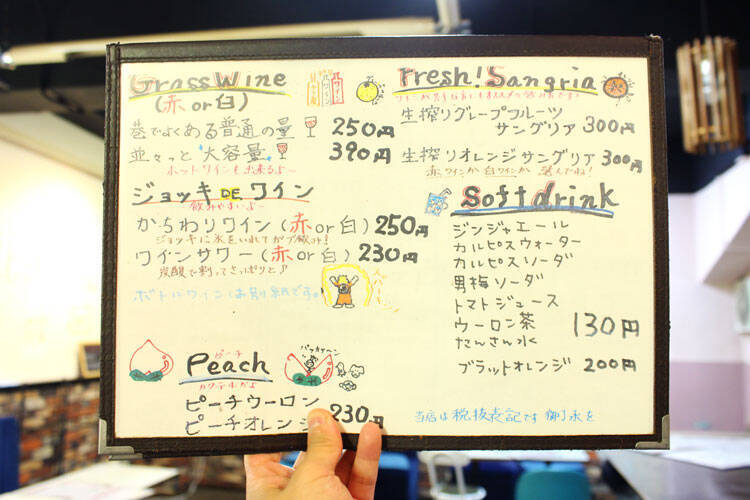 Grass Wine
(赤 or 白)
巷でよくある普通の量 250円
並々っと大容量 390円
ホットワインも出来るよ〜
ジョッキ DE ワイン
飲みやすいよ〜
かちわりワイン(赤 or 白) 250円
ジョッキに氷をいれてガブ飲み!
ワインサワー(赤 or 白) 230円
炭酸で割ってさっぱりと♪
ボトルワインは別紙です。
ピーチ
Peach
カクテルだよ
パッカァーン
ピーチウーロン
ピーチオレンジ 230円
Fresh! Sangria
生搾りグレープフルーツ
サングリア 300円
生搾りオレンジサングリア 300円
赤ワインか白ワインか選んでね!
Soft drink
ジンジャエール
カルピスウォーター
カルピスソーダ
男梅ソーダ
トマトジュース
ウーロン茶 130円
たんさん水
ブラットオレンジ 200円
当店は税抜表記です 御了承を